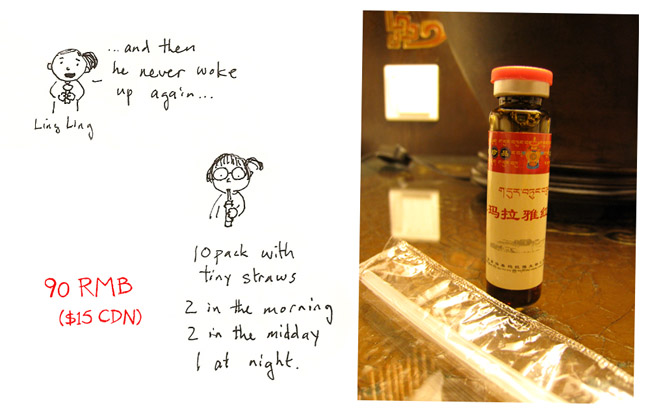 ...and then
he never woke
up again...
Ling Ling
10 pack with
tiny straws
2 in the morning
2 in the midday
1 at night.
90 RMB
($15 CDN)
玛拉雅红